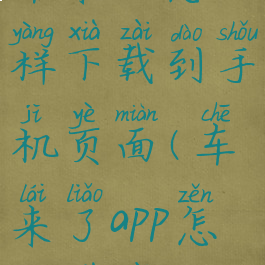 yàng xià zài dào shǒu
样下载到手
jī yè miàn chē
机页面(车
lái liǎo zěn
来了app怎